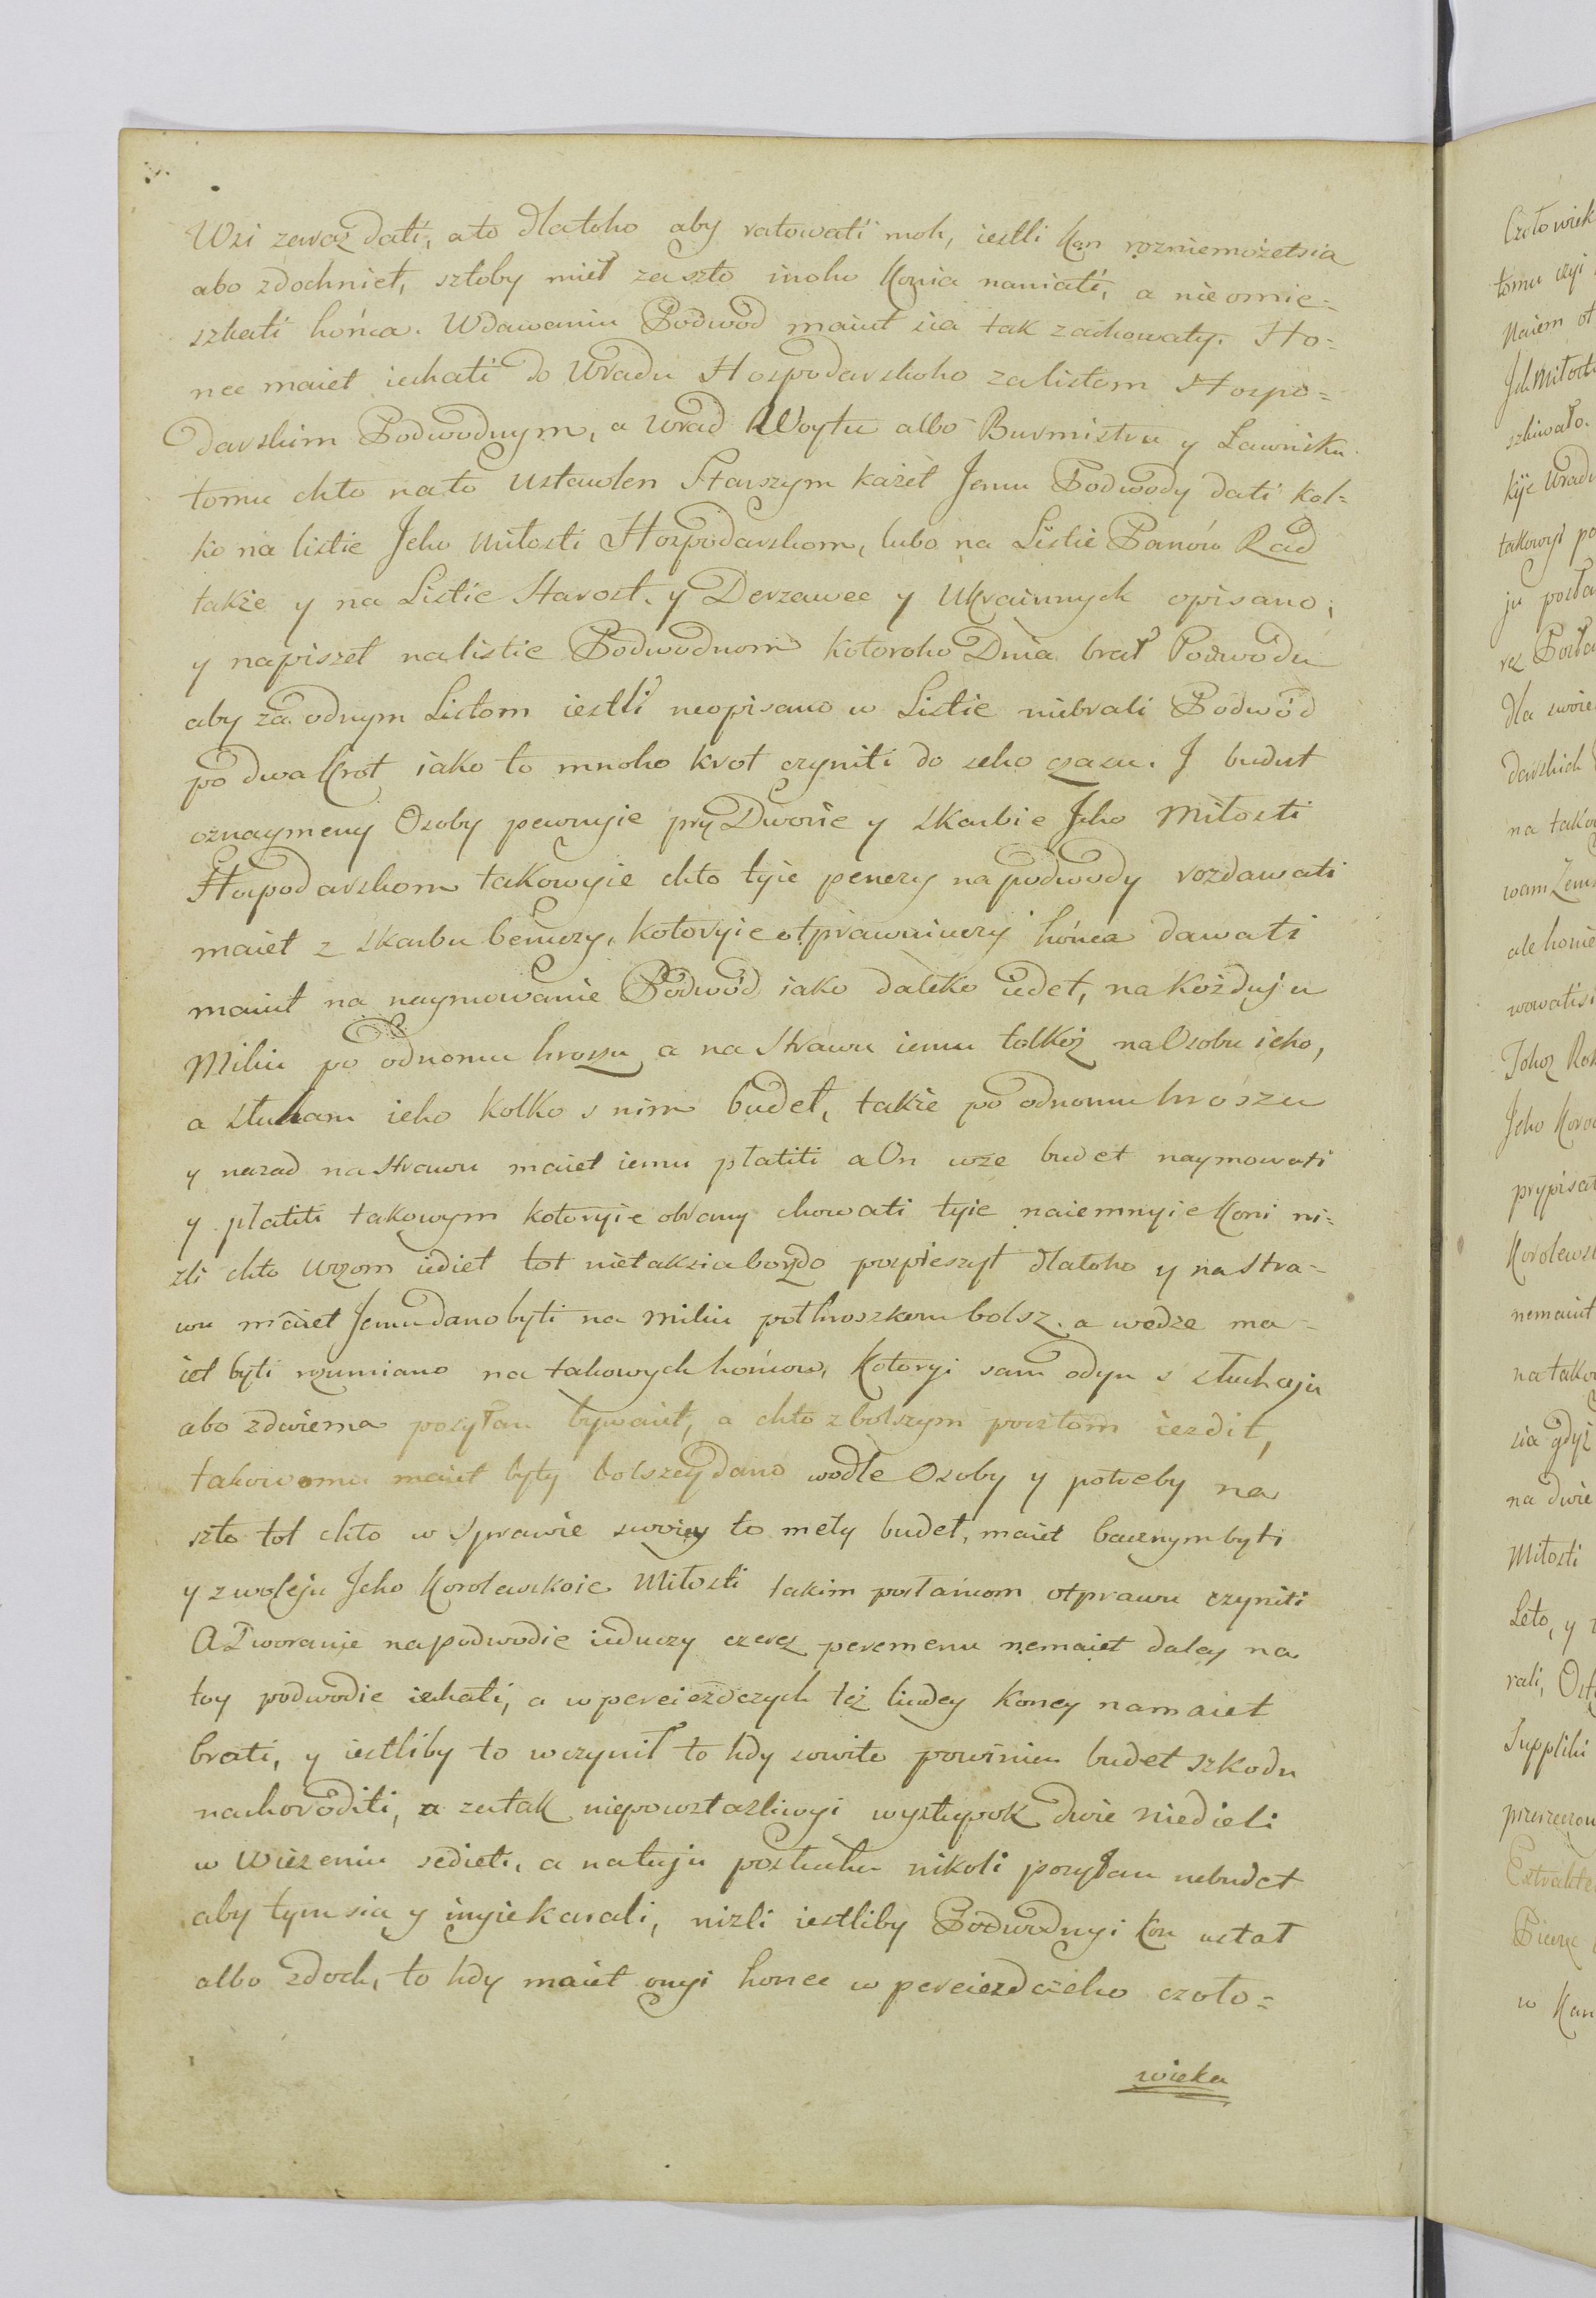 Wsi zaraz dati, a to dlatoho aby ratowati moh, iestli kon rozniemożetsia
abo zdochniet, sztoby mieł za szto inoho konia naniati, a nieomie=
szkati hońca. Wdawaniu Podwod maiut sia tak zachowaty. Ho=
nec maiet iechati do Uradu Hospodarskoho zalistom Hospo=
darskim Podwodnym, a Urad Woytu albo Burmistru y Ławniku
tomu chto nato ustawlen Starszym każet Jemu Podwody dati kol=
ko na listie Jeho Miłosti Hospodarskom, lubo na Listie Panów Rad
także y na Listie Starost. y Derzawec y Ukrainnych opisano;
y napiszet nalistie Podwodnom kotoroho Dnia brał Podwodu
aby za odnym Listom iestli neopisano w Listie niebrali Podwód
po dwa krot iako to mnoho krot czyniti do seho czasu. J budut
oznaymeny Osoby pewnyie pry Dworie y skarbie Jeho Miłosti
Hospodarskom takowyie chto tyie penezy napodwody rozdawati
maiet z skarbu beruczy, kotoryie otprawuiuczy hońca dawati
maiut na naymowanie Podwód iako daleko iedet, na kożduju
Miliu po odnomu hroszu, a na Strawu iemu tolkoż na Osobu ieho,
a słuham ieho kolko s nim budet, także po odnomu hroszu
y nazad na strawu maiet iemu płatiti a On uże budet naymowati
y płatiti takowym kotoryie obrany chowati tyie naiemnyie koni ni=
zli chto Wozom iediet tot nietaksia borzdo pospieszyt dlatoho y na Stra=
wu maiet Jemu dano byti na miliu połhroszkom bolsz. a wedże ma=
iet byti rozumiano na takowych hońcow, kotoryi sam odyn s słuhoju
abo zdwiema posyłan bywaiut, a chto z bolszym pocztom iezdit,
takowomu maiet byty bolszey dano wodle Osoby y potreby na
szto tot chto w Sprawie swoiey to mety budet, maiet bacznym byti
y z woleju Jeho Korolewskoie Miłosti takim posłańcom otprawu czyniti
A Dworanie napodwodie ieduczy czerez peremenu nemaiet daley na
toy podwodie iechati, a w pereiezdczych też liudey koney namaiet
brati, y iestliby to wczynił to hdy sowito powinien budet szkodu
nahoroditi, a zatak niepowstazliwyi wystupok dwie niedieli
w Wiezeniu sedieti, a natuju posłuhu nikoli posyłan nebudet
aby tym sia y inyie karali, nizli iestliby Podwodnyi kon ustał
albo zdoch, to hdy maiet onyi honec w pereiezdczeho czoło=
wieka